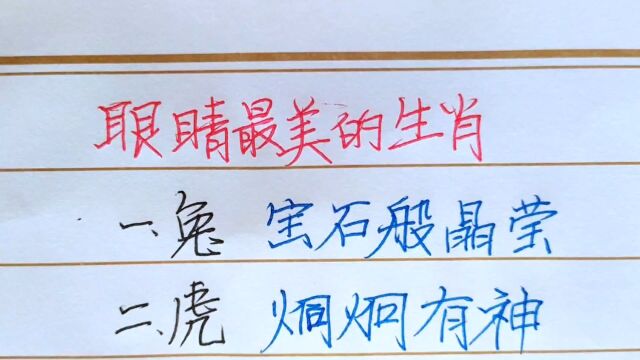 眼睛最美的生肖
一、兔 宝石般晶莹
二、虎 炯炯有神